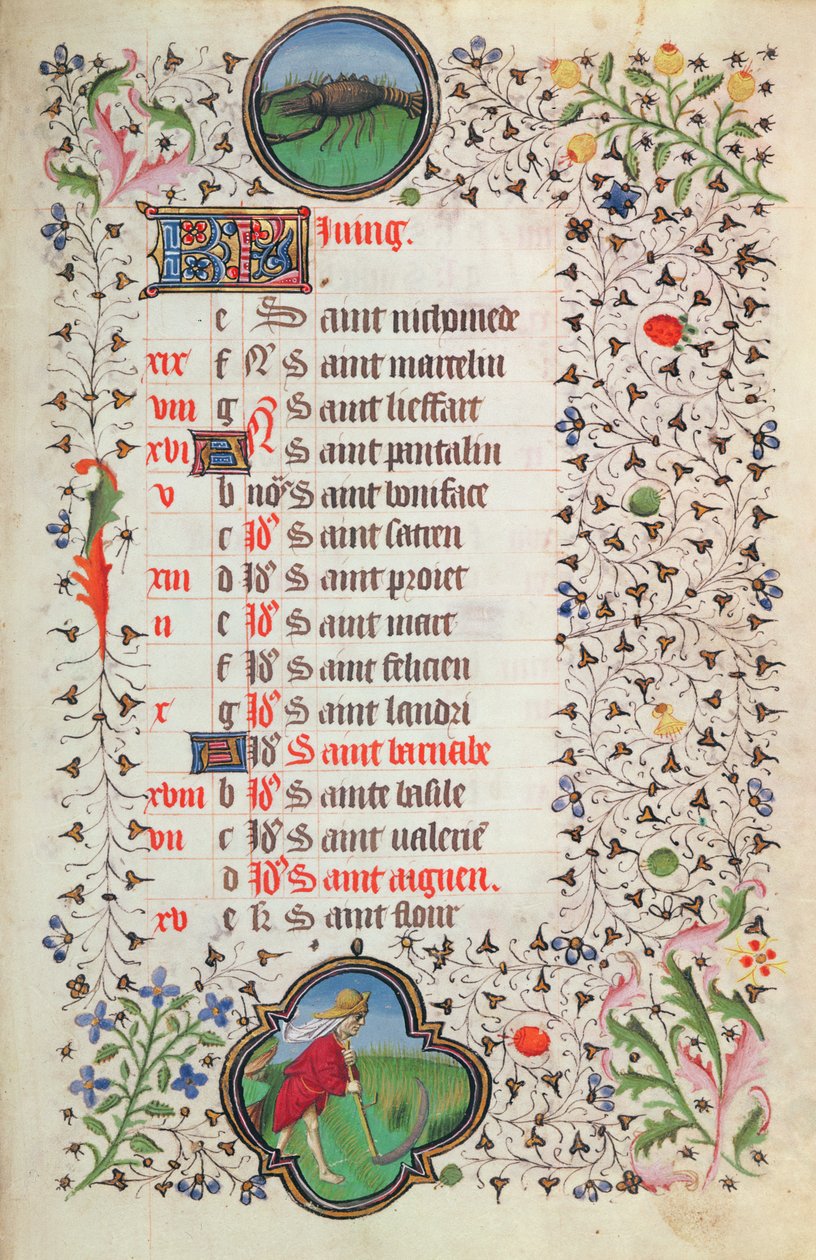 KL Juing.
e Saint nichomede
xix f N S aint marcelin
viii g N S aint lieffart
xvi A S aint pantalin
v b no9 S aint boniface
c Id9 S aint satien
xiii d Id9 S aint proiet
ii e Id9 S aint mart
f Id9 S aint felicien
x g Id9 S aint landri
A Id9 S aint barnabe
xviii b Id9 S ainte basile
vii c Id9 S aint valerie
d Id9 S aint aignen.
xv e k S aint flour